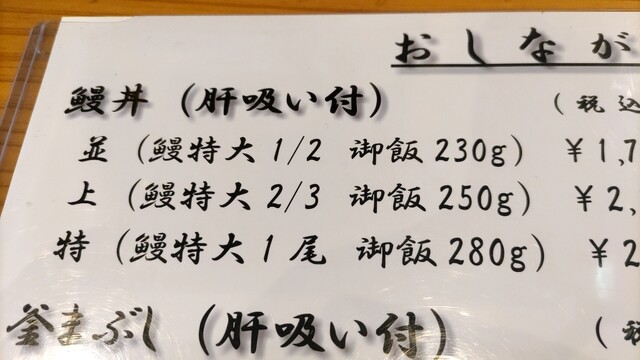 おしなが
鰻丼（肝吸い付）（税込
並（鰻特大1/2 御飯230g）￥1,7
上（鰻特大2/3 御飯250g）￥2,
特（鰻特大1尾 御飯280g）￥2
釜まぶし（肝吸い付）（税